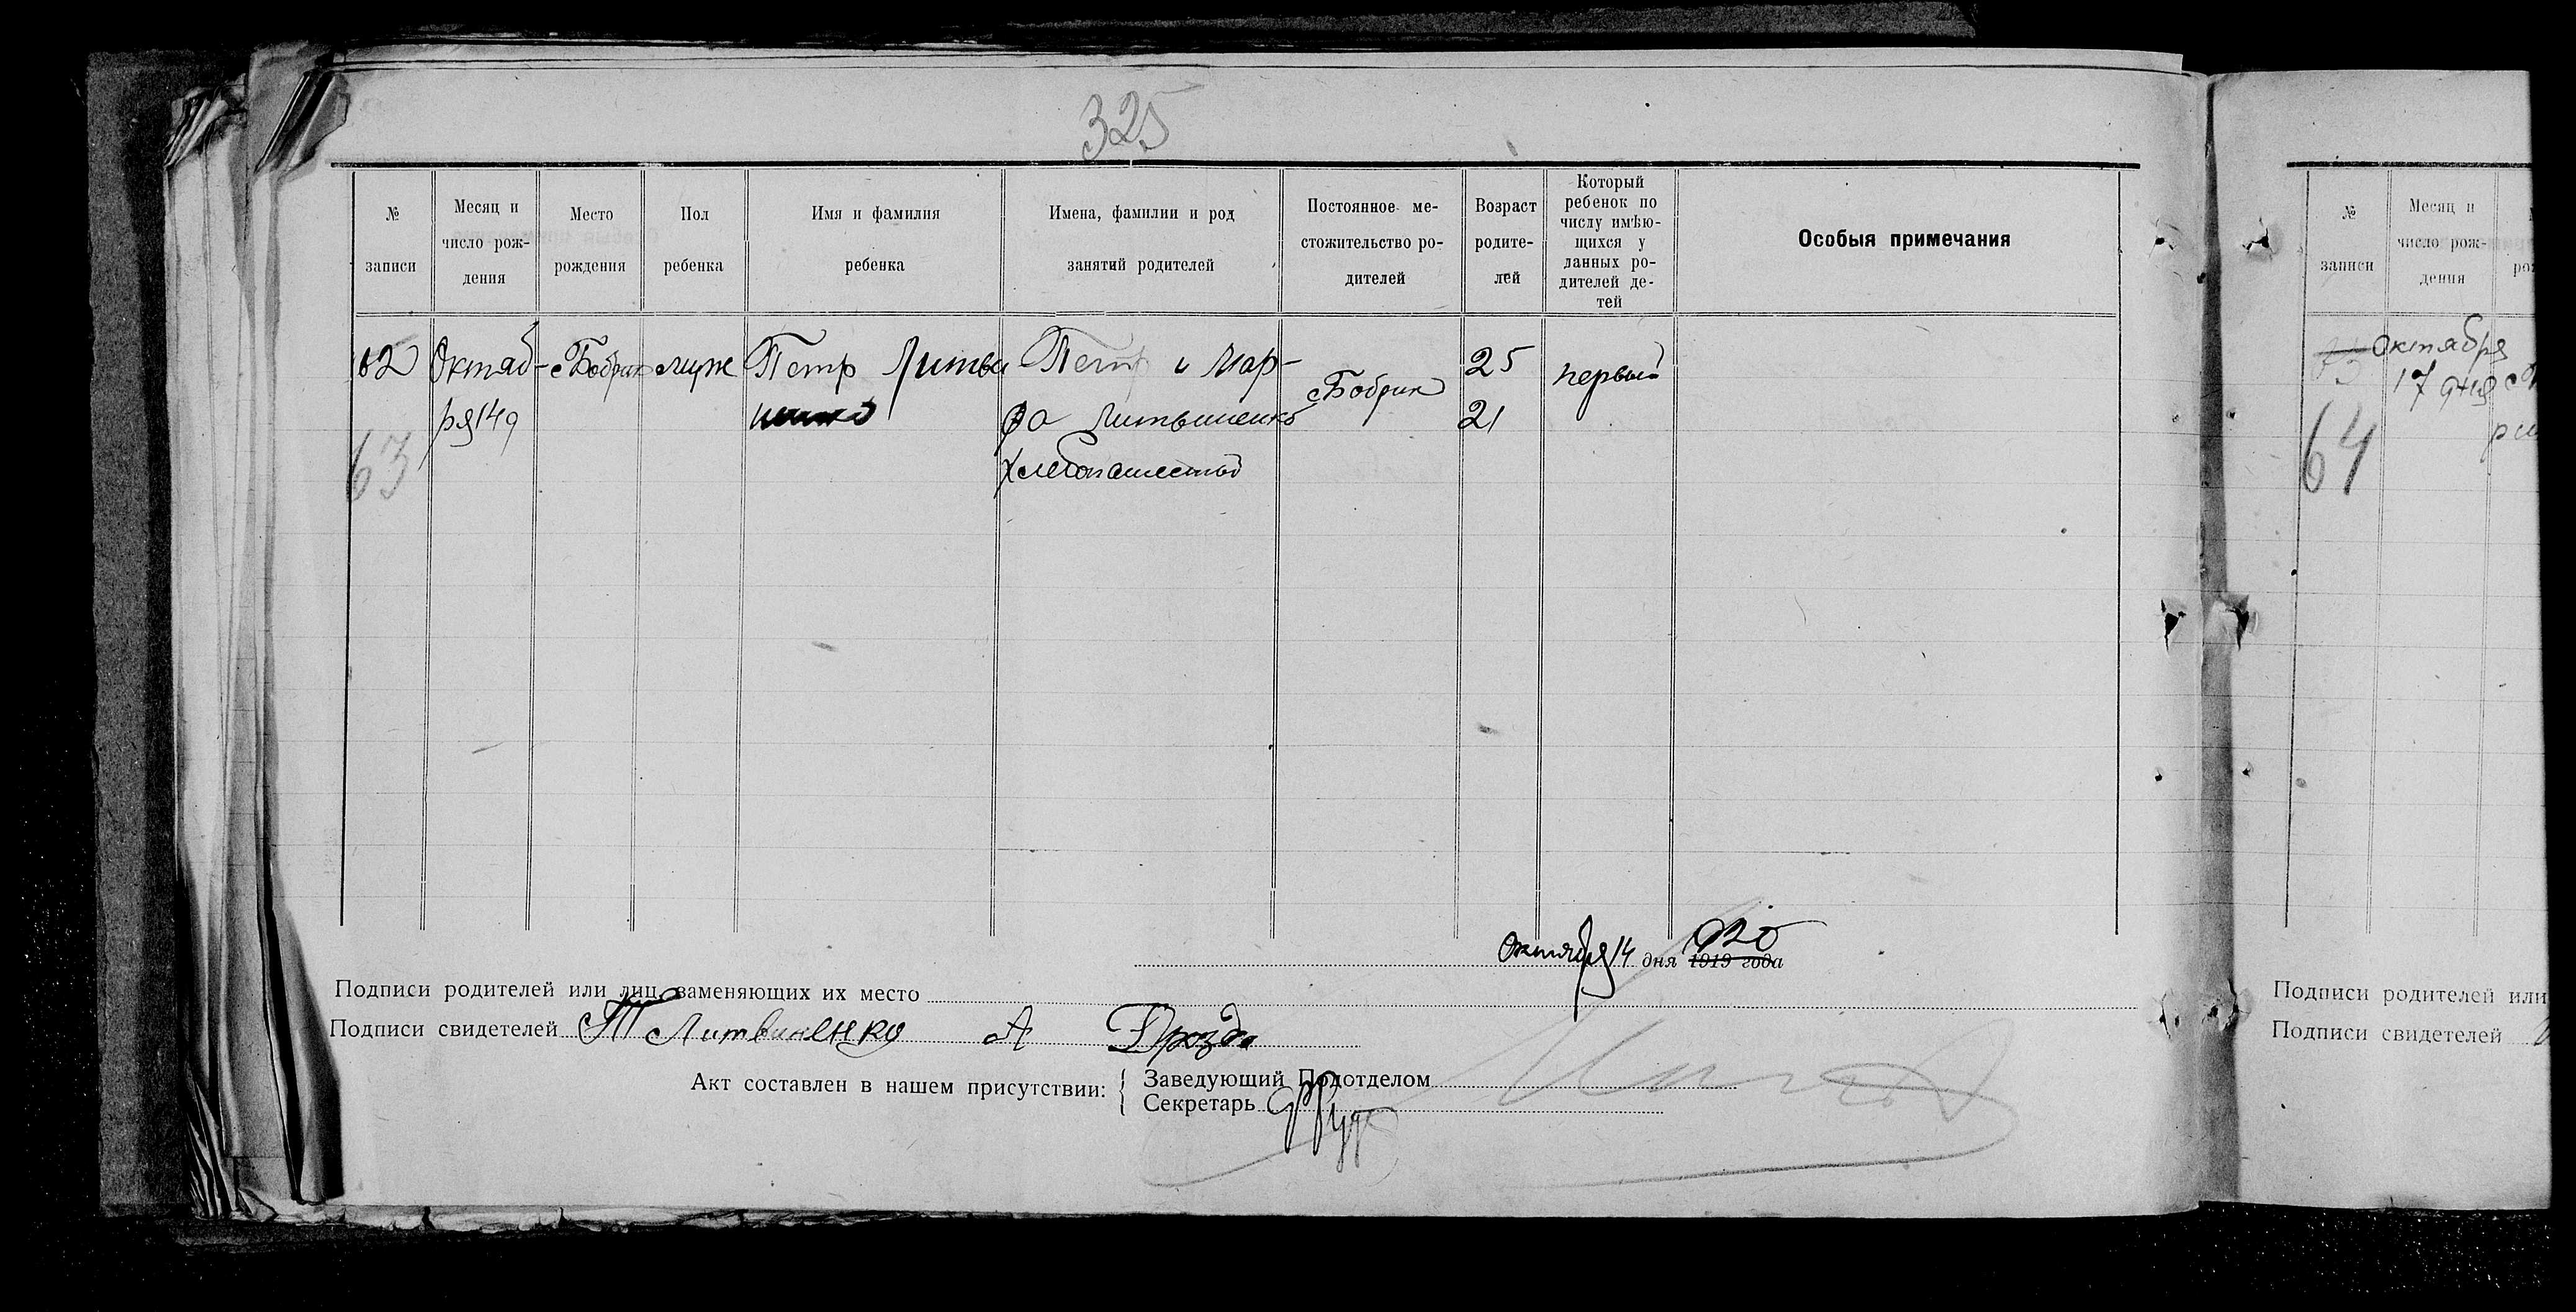 325
№ записи
Месяц и число рождения
Место рождения
Пол ребенка
Имя и фамилия ребенка
Имена, фамилии и род занятий родителей
Постоянное местожительство родителей
Возраст родителей
Который ребенок по числу имѣющихся у данных родителей детей
Особыя примечания
62 Октяб- с Бобрик муж Петр Литви Петр и Мар- с Бобрик 25 первый
ря 14 д ненко фа Литвиненко 21
63 хлебопашество
Октября 14 дня 1919 года 920
Подписи родителей или лиц, заменяющих их место
Подписи свидетелей Литвиненко А Дрозд
Акт составлен в нашем присутствии: { Заведующий Подотделом
Секретарь
№ записи
Месяц и число рождения
73 Октября
17 дня с
64
Подписи родителей или
Подписи свидетелей